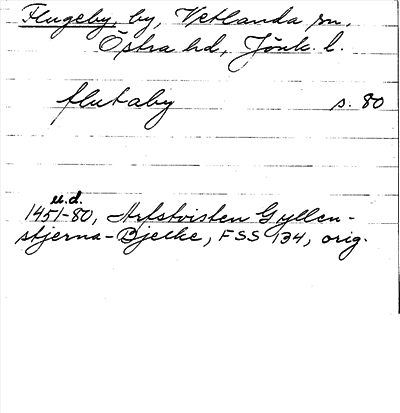 Flugeby, by, Vetlanda sn.
Östra hd, Jönk. l.
flutaby s. 80
u.d.
1451-80, Arfstvisten Gyllen-
stjerna-Bjelke, FSS 134, orig.